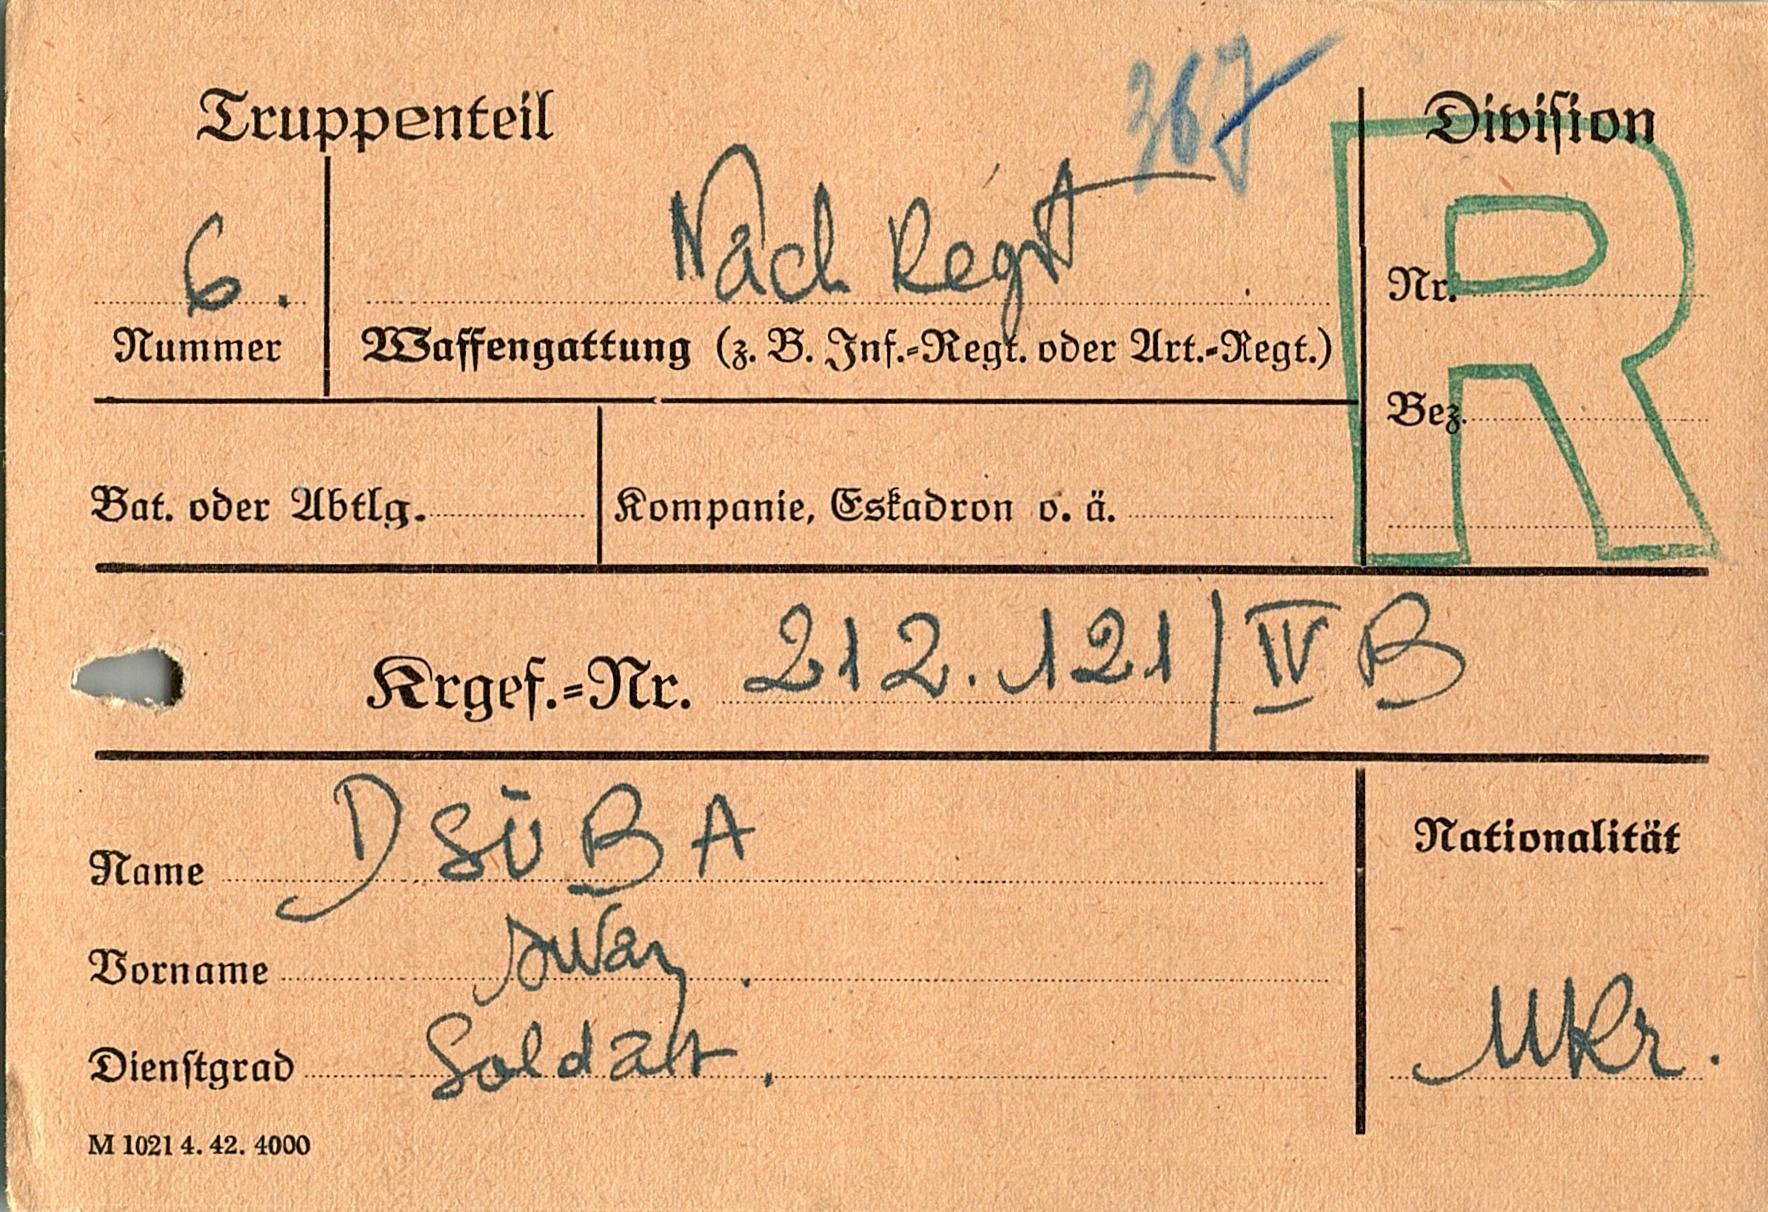 367
Truppenteil
Division
R
6.
Nach Regt
Nr.
Nummer
Waffengattung (z. B. Inf.-Regt. oder Art.-Regt.)
Bez.
Bat. oder Abtlg.
Kompanie, Eskadron o. ä.
Krgef.-Nr. 212.121/IV B
Name DSŪBA
Nationalität
Vorname Iwan.
Dienstgrad Soldat.
Ukr.
M 1021 4. 42. 4000